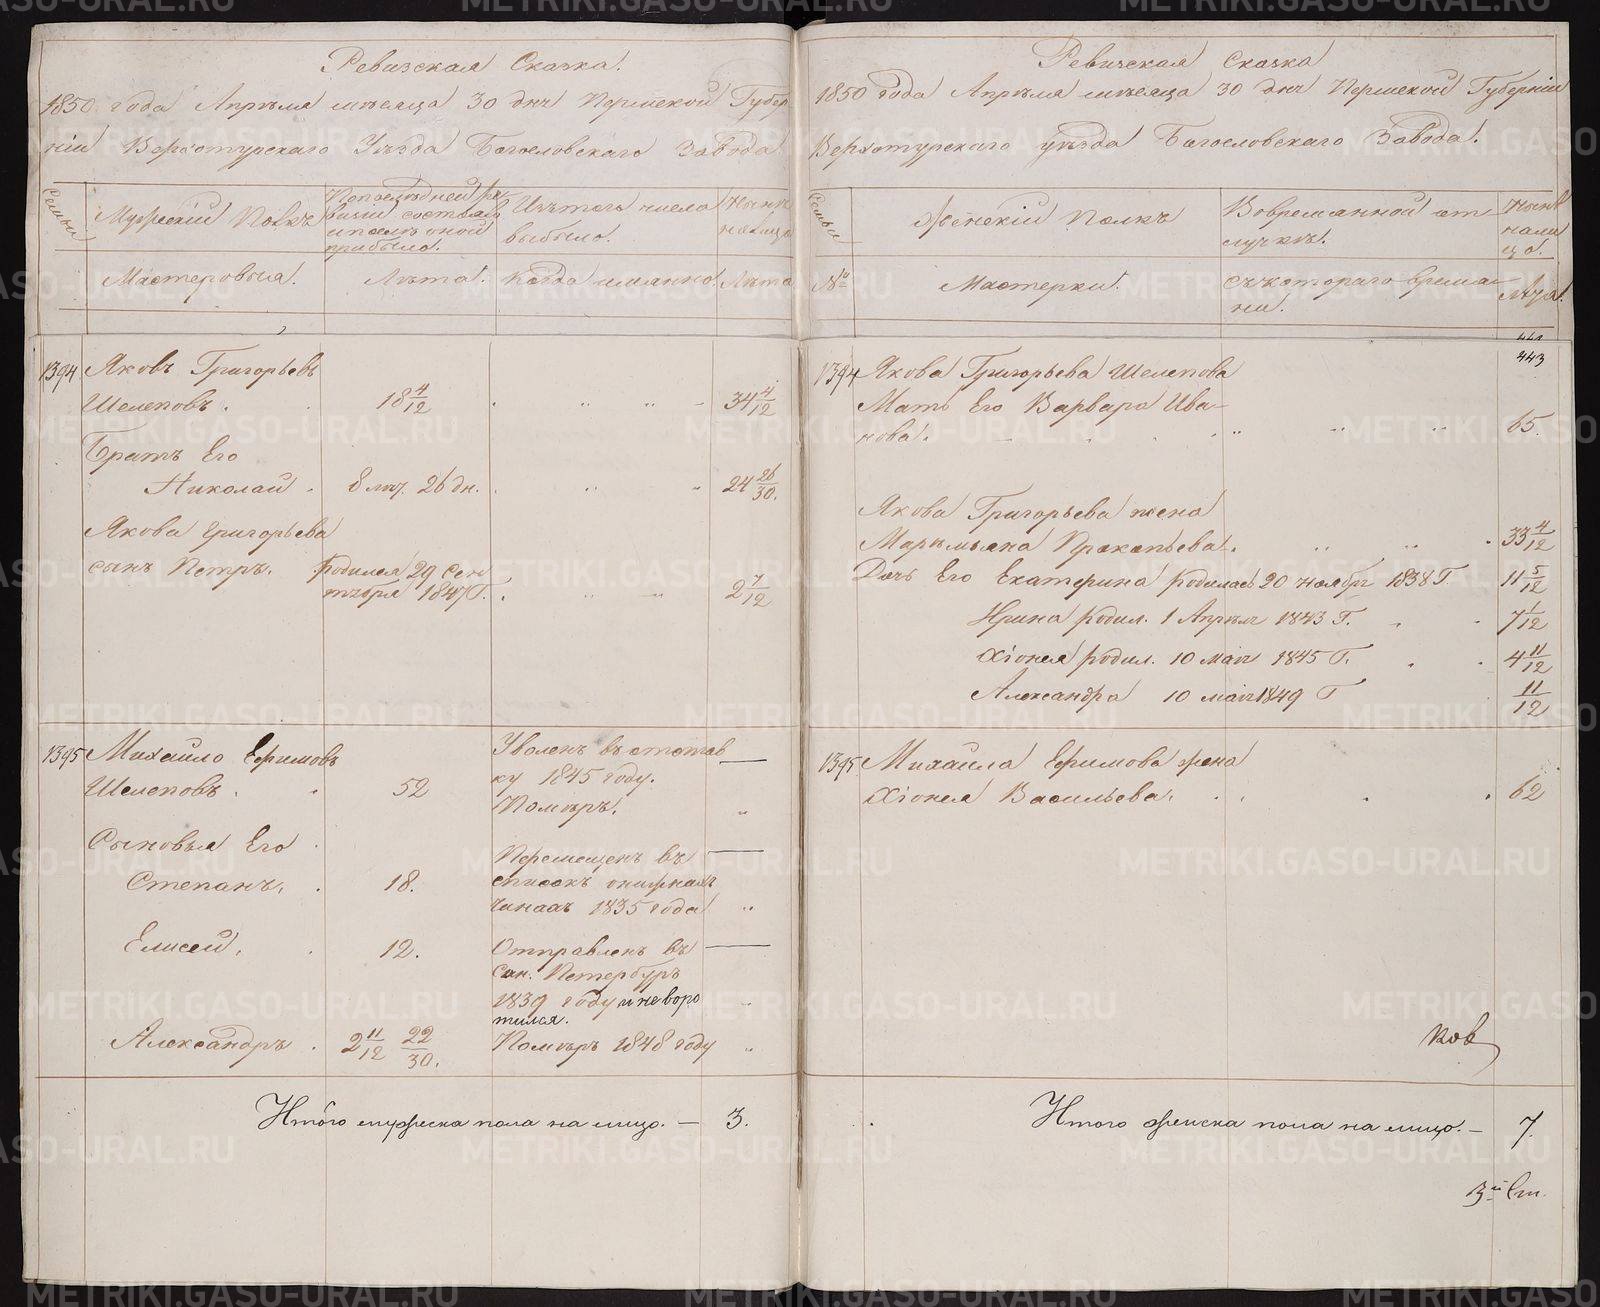 Ревизская Сказка.
1850 года Апреля месяца 30 дня Пермской Губер
ніи Верхотурскаго Уезда Богословскаго Завода.
Семьи
Мужескій Полкъ
Последней ре
визіи состояло
и после оной
прибыло.
Изътого числа
выбыло.
Ныне
налицо
Мастеровыя.
Лета.
Когда имянно.
Лета
1394 Яковъ Григорьевъ
Шелеповъ. 18 4/12 34 4/12
Братъ Его
Николай. 8 мц. 26 дн. 24 26/30.
Якова Григорьева
сынъ Петръ. родился 29 Сен
тября 1847 Г. 2 7/12
1395 Михаило Ефимовъ Уволенъ въ отстав
Шелеповъ. 52 ку 1845 году.
Померъ.
Сыновья Его
Перемещенъ въ
Степанъ. 18. списокъ онижнихъ
чинахъ 1835 года
Елисей. 12. Отправленъ въ
Сан. Петербургъ
1839 году и неворо
тился.
Александръ. 2 11/12 22/30. Померъ 1848 году
Итого мужеска пола на лицо. — 3.
Ревизская Сказка
1850 года Апреля месяца 30 дня Пермской Губерніи
Верхотурскаго уезда Богословскаго Завода.
Семьи
Женскій Полкъ
Вовременной от
лучке.
Ныне
нали
цо.
№
Мастерки.
съкотораго време
ни.
Лета.
441
443
1394 Якова Григорьева Шелепова
Мать Его Варвара Ива
нова. 65.
Якова Григорьева жена
Маремьяна Прокопьева. 33 4/12
Дочь Его Екатерина родилась 20 ноября 1838 Г. 11 5/12
Ирина родил. 1 Апреля 1843 Г. 7 1/12
Хіонея родил. 10 Мая 1845 Г. 4 11/12
Александра 10 мая 1849 Г 11/12
1395 Михаила Ефимова жена
Хіонея Васильева. 62
ков
Итого женска пола на лицо. — 7.